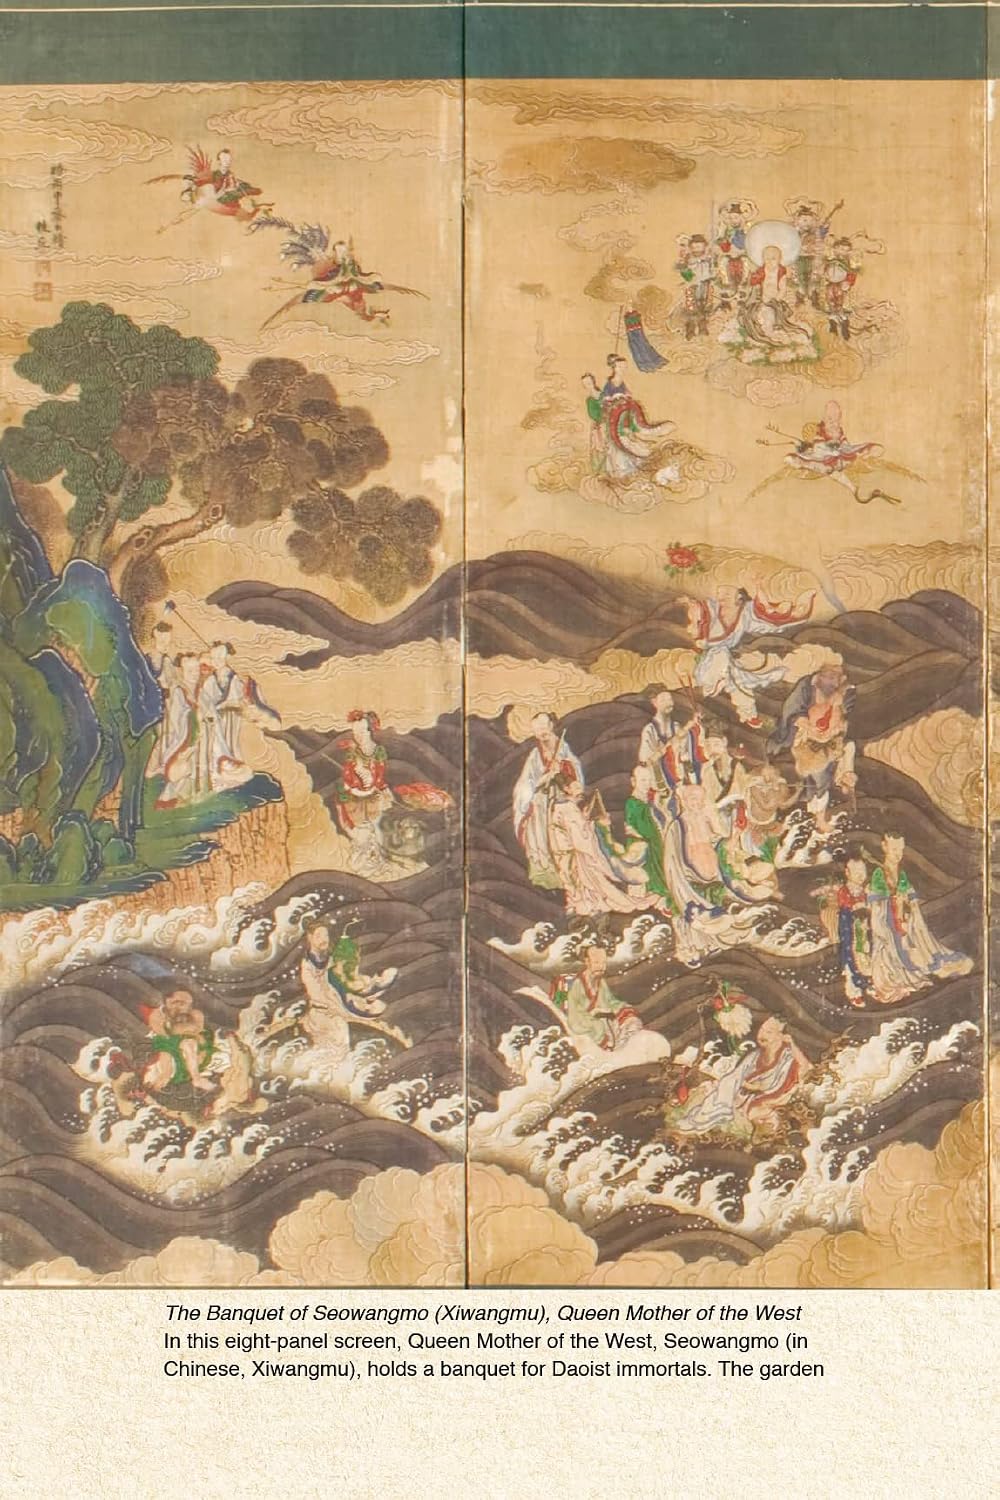 The Banquet of Seowangmo (Xiwangmu), Queen Mother of the West
In this eight-panel screen, Queen Mother of the West, Seowangmo (in
Chinese, Xiwangmu), holds a banquet for Daoist immortals. The garden